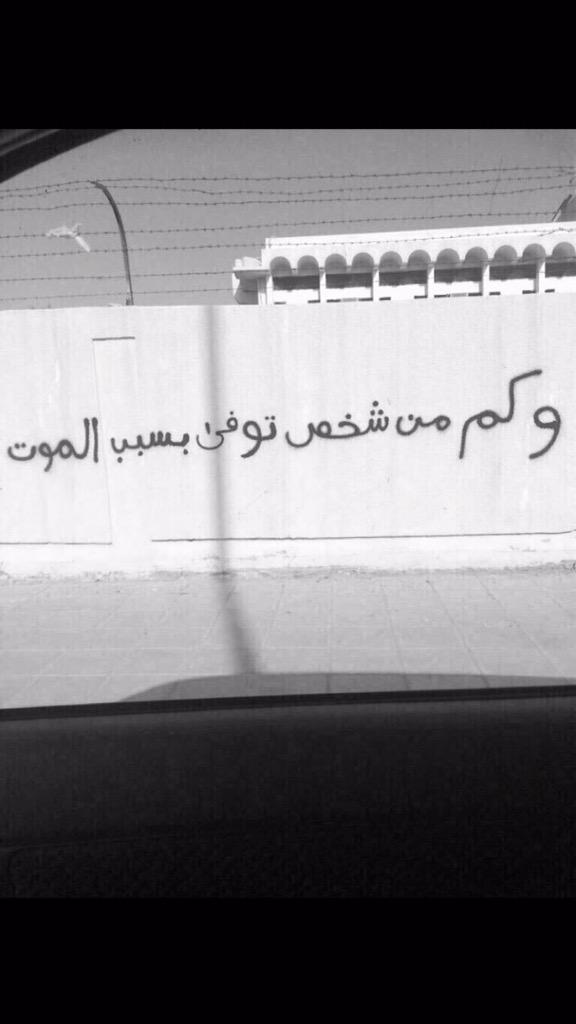 وكم من شخص توفى بسبب الموت